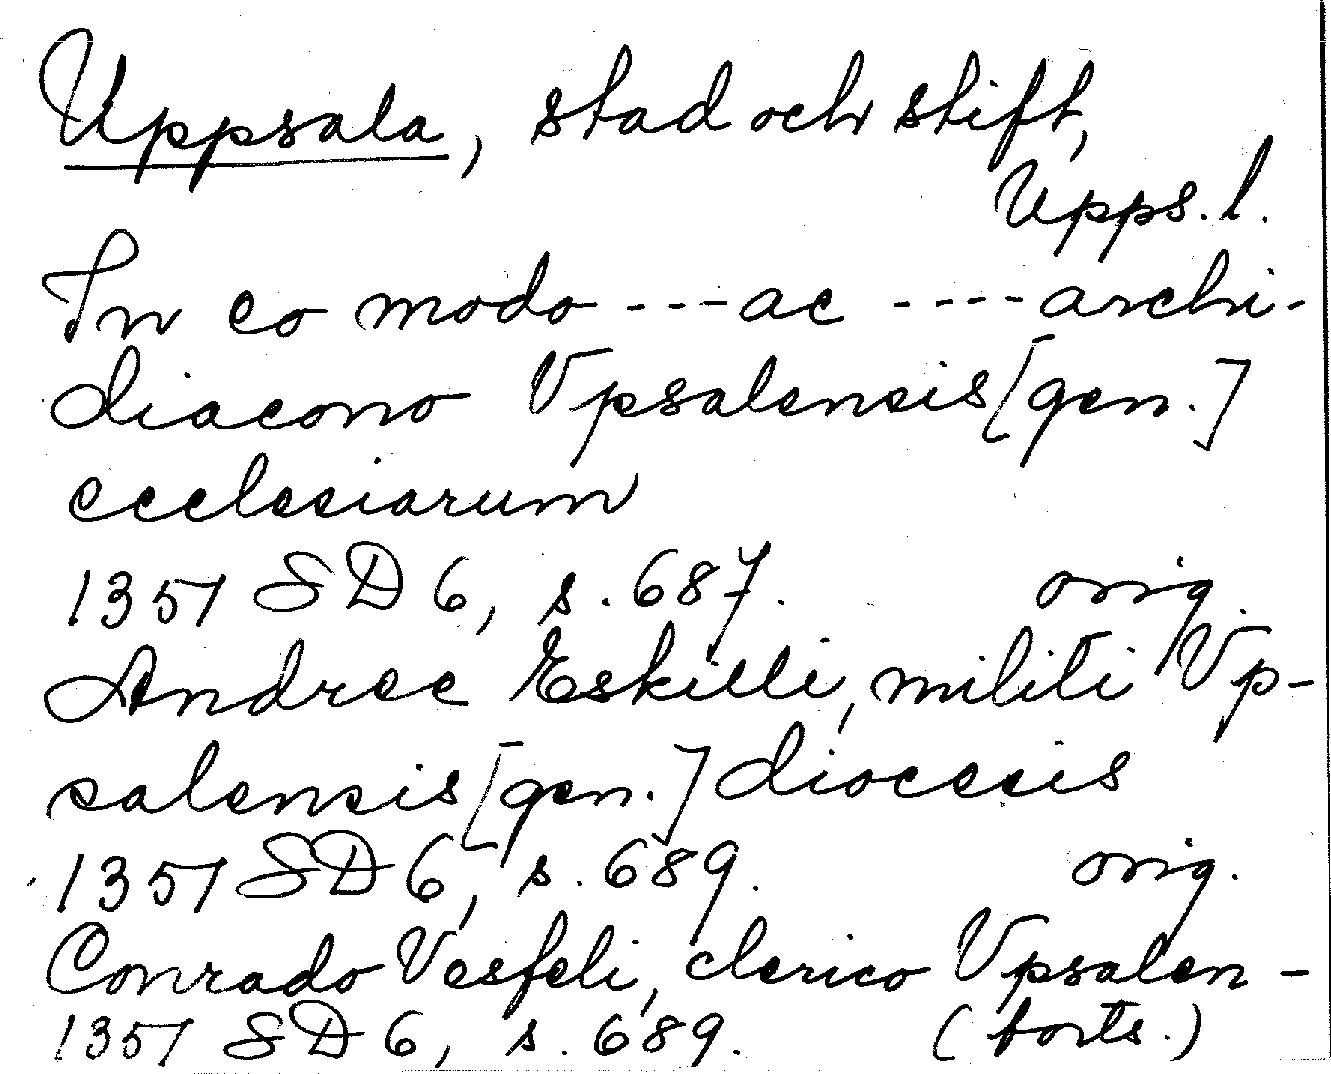 Uppsala, stad och stift,
Upps. l.
In eo modo --- ac ---- archi-
diacono Vpsalensis [gen.]
ecclesiarum
1351 SD 6, s. 687. orig.
Andree Eskilli, militi Vp-
salensis [gen.] diocesis
1351 SD 6, s. 689. orig.
Conrado Vesfeli, clerico Vpsalen-
1351 SD 6, s. 689. (forts.)